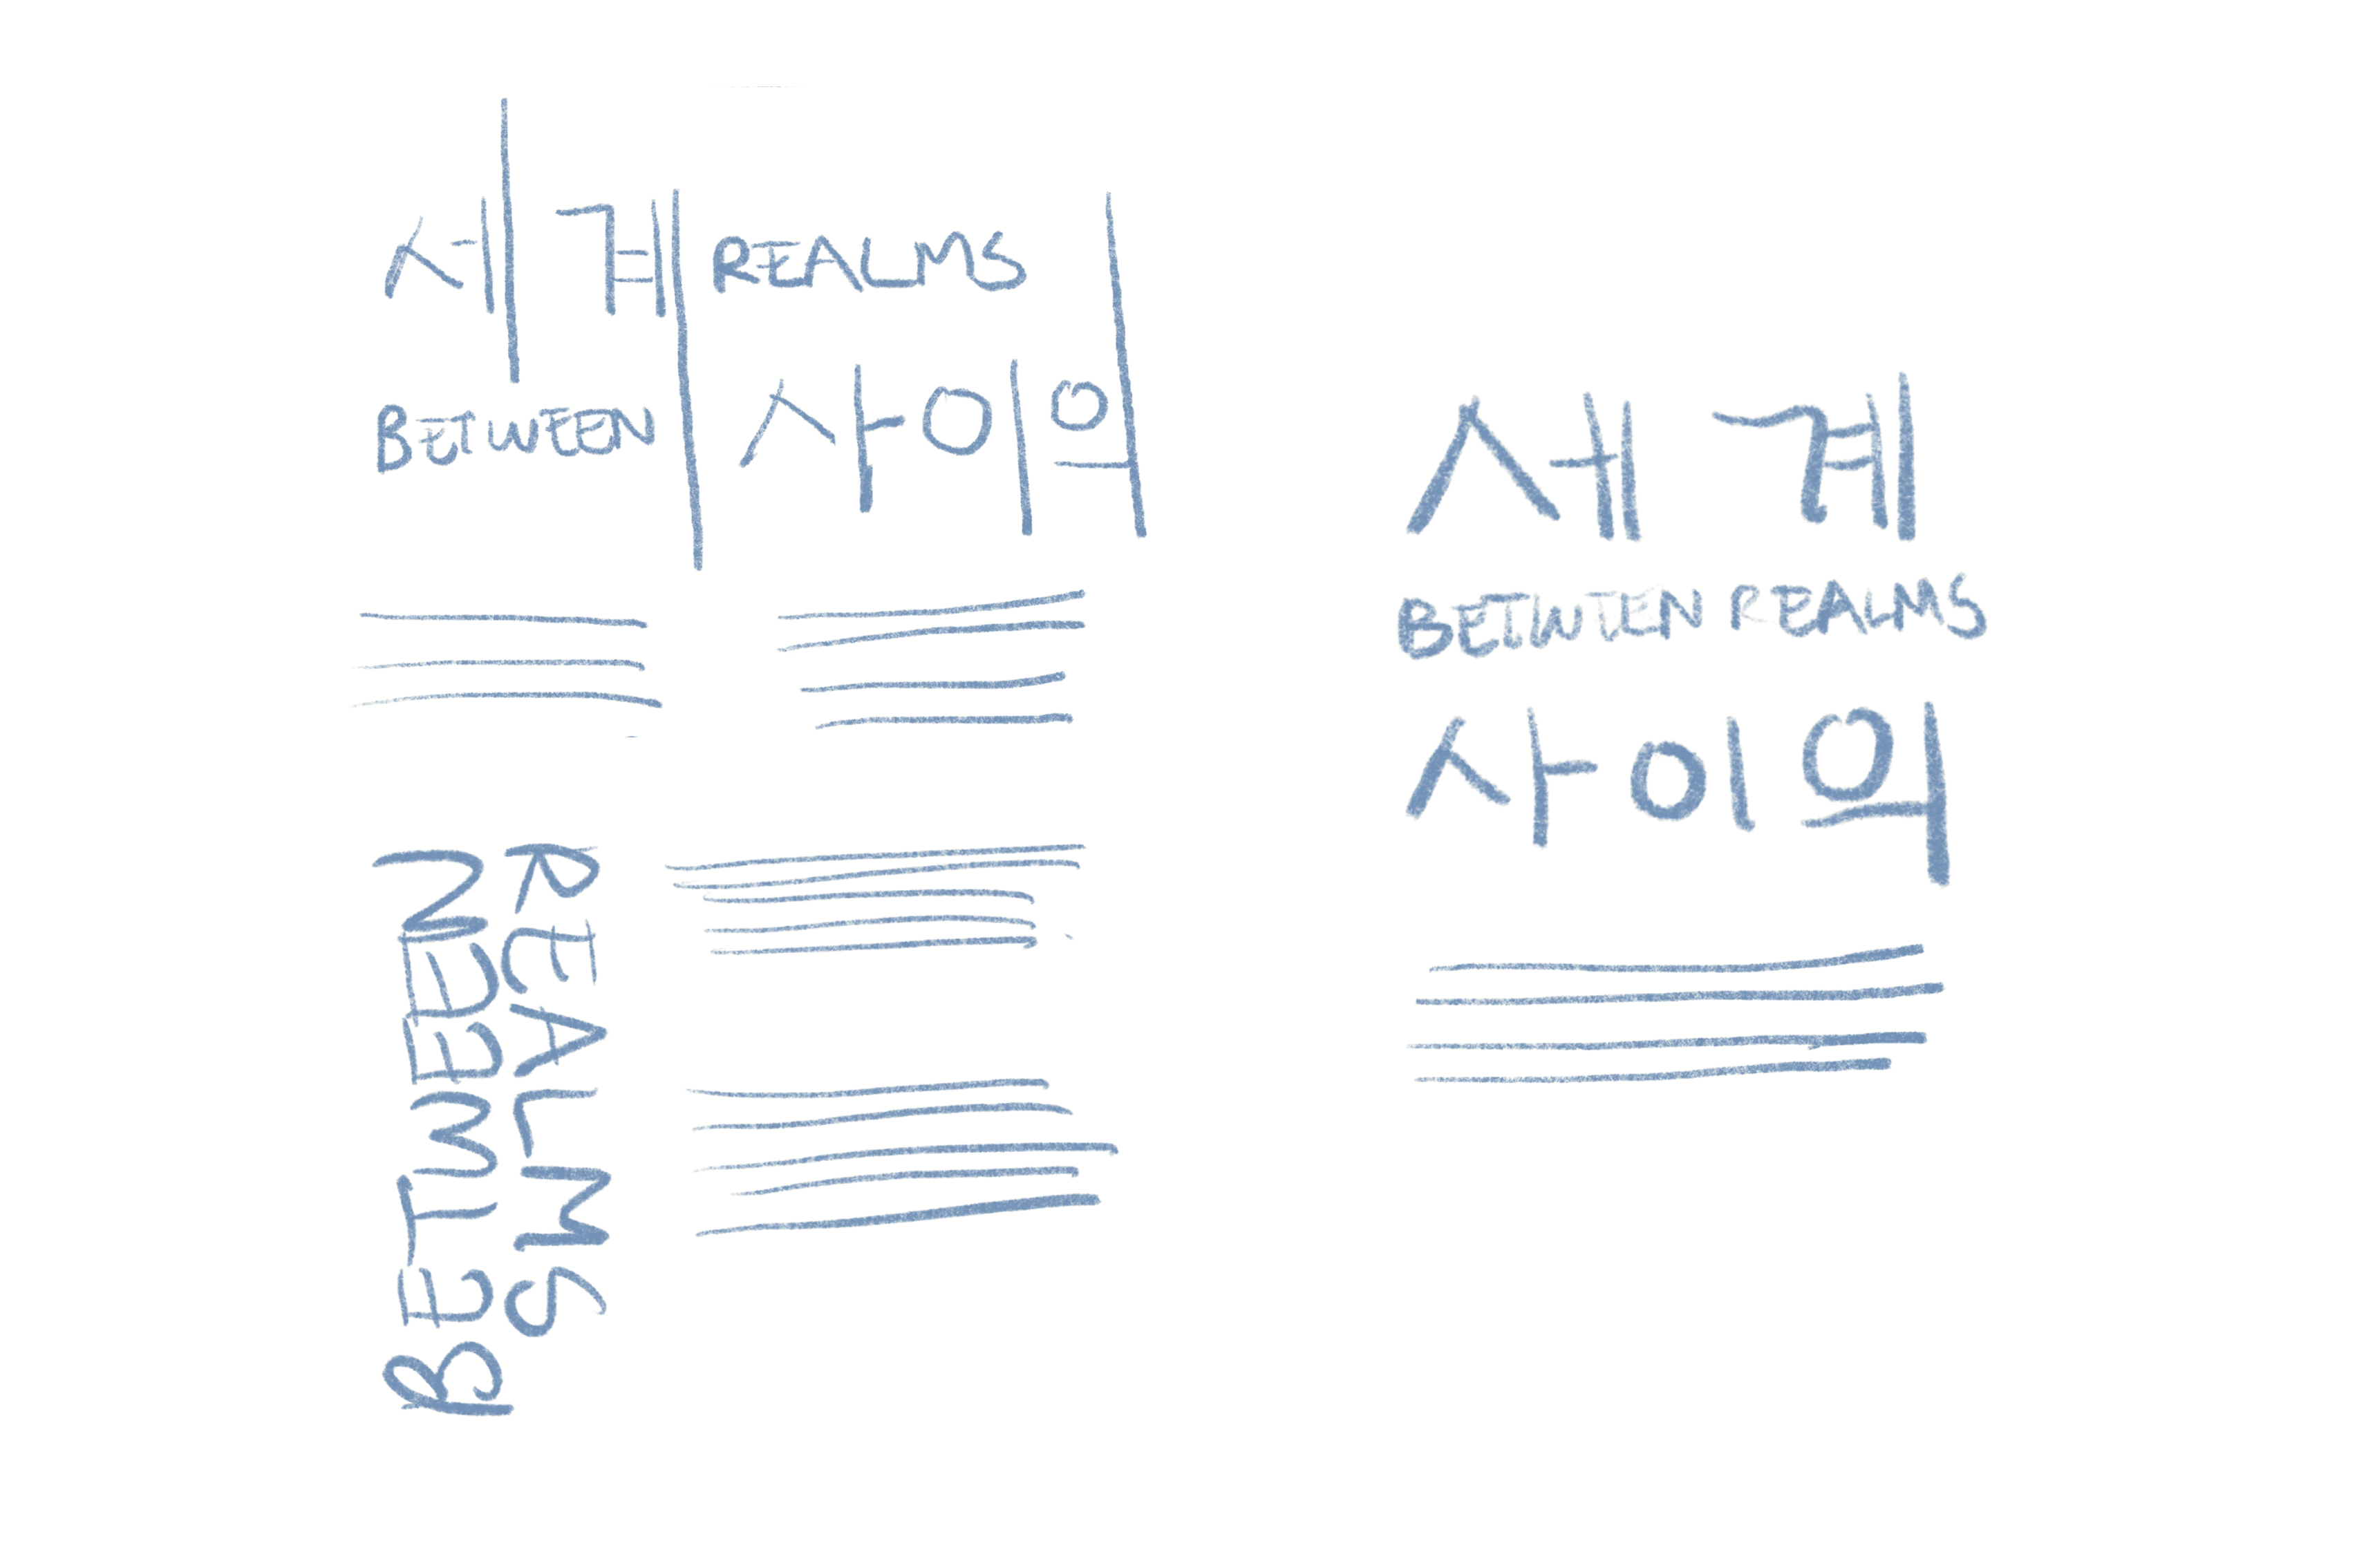 세계 REALMS
BETWEEN 사이의
BETWEEN
REALMS
세계
BETWEEN REALMS
사이의